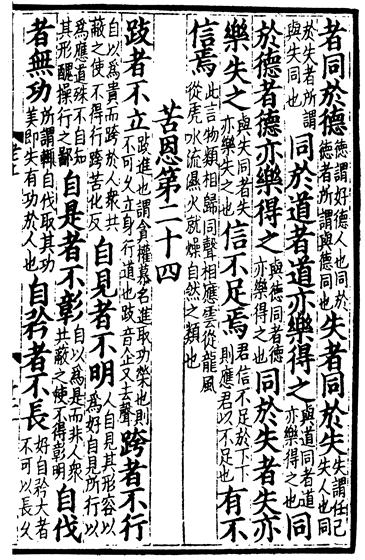 者同於德德謂好德人也同於德者所謂與德同也失者同於失失謂任己失人也同
於失者所謂與失同也同於道者道亦樂得之與道同者道亦樂得之也同
於德者德亦樂得之與德同者德亦樂得之也同於失者失亦
樂失之與失同者失亦樂失之也信不足焉君信不足於下下則應君以不足也有不
信焉此言物類相歸同聲相應雲從龍風從虎水流濕火就燥自然之類也
苦恩第二十四
跂者不立跂進也謂貪權慕名進取功榮也則不可久立身行道也跂音企又去聲跨者不行
自以爲貴而跨於人衆共蔽之使不得行跨苦化反自見者不明人自見其形容以爲好自見所行以
爲應道殊不自知其形醜操行之鄙自是者不彰自以爲是而非人衆共蔽之使不得彰明自伐
者無功所謂輒自伐取其功美即失有功於人也自矜者不長好自矜大者不可以長久